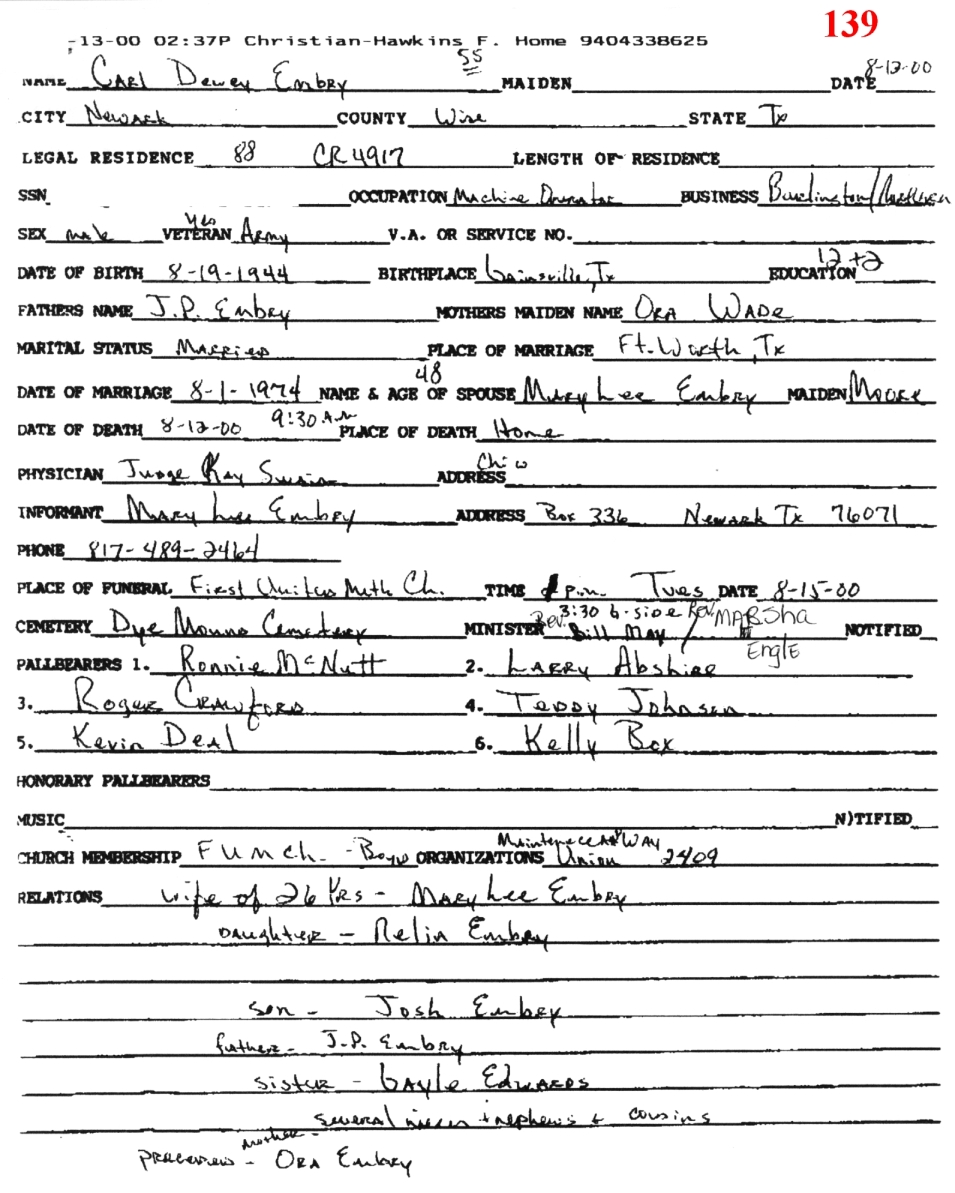 139
-13-00 02:37P Christian-Hawkins F. Home 9404338625
55
NAME Carl Dewey Embry MAIDEN DATE 8-12-00
CITY Newark COUNTY Wise STATE Tx
LEGAL RESIDENCE 88 CR 4917 LENGTH OF RESIDENCE
SSN OCCUPATION Machine Operator BUSINESS Burlington/Northern
SEX male VETERAN yes Army V.A. OR SERVICE NO.
DATE OF BIRTH 8-19-1944 BIRTHPLACE Gainsville, Tx EDUCATION 12+2
FATHERS NAME J.P. Embry MOTHERS MAIDEN NAME Ora Wade
MARITAL STATUS Married PLACE OF MARRIAGE Ft. Worth, Tx
DATE OF MARRIAGE 8-1-1974 NAME & AGE OF SPOUSE 48 Mary Lee Embry MAIDEN Moore
DATE OF DEATH 8-12-00 9:30 A.M PLACE OF DEATH Home
PHYSICIAN Judge Ray ADDRESS
INFORMANT Mary Lee Embry ADDRESS Box 336 Newark Tx 76071
PHONE 817-489-2464
PLACE OF FUNERAL First United Meth Ch. TIME p.m. Tues DATE 8-15-00
3:30 b-side
CEMETERY Dye Mound Cemetery MINISTER Rev. Bill May / Rev. Marsha Engle NOTIFIED
PALLBEARERS 1. Ronnie McNutt 2. Larry Abshire
3. Roger Crawford 4. Teddy Johnson
5. Kevin Deal 6. Kelly Box
HONORARY PALLBEARERS
MUSIC N)TIFIED
CHURCH MEMBERSHIP FUMCh. - Boyd ORGANIZATIONS Maintenece of Way Union 2409
RELATIONS wife of 26 Yrs - Mary Lee Embry
Daughter - Relin Embry
son - Josh Embry
father - J.P. Embry
sister - Gayle Edwards
several nieces + nephews + cousins
mother -
preceeded - Ora Embry